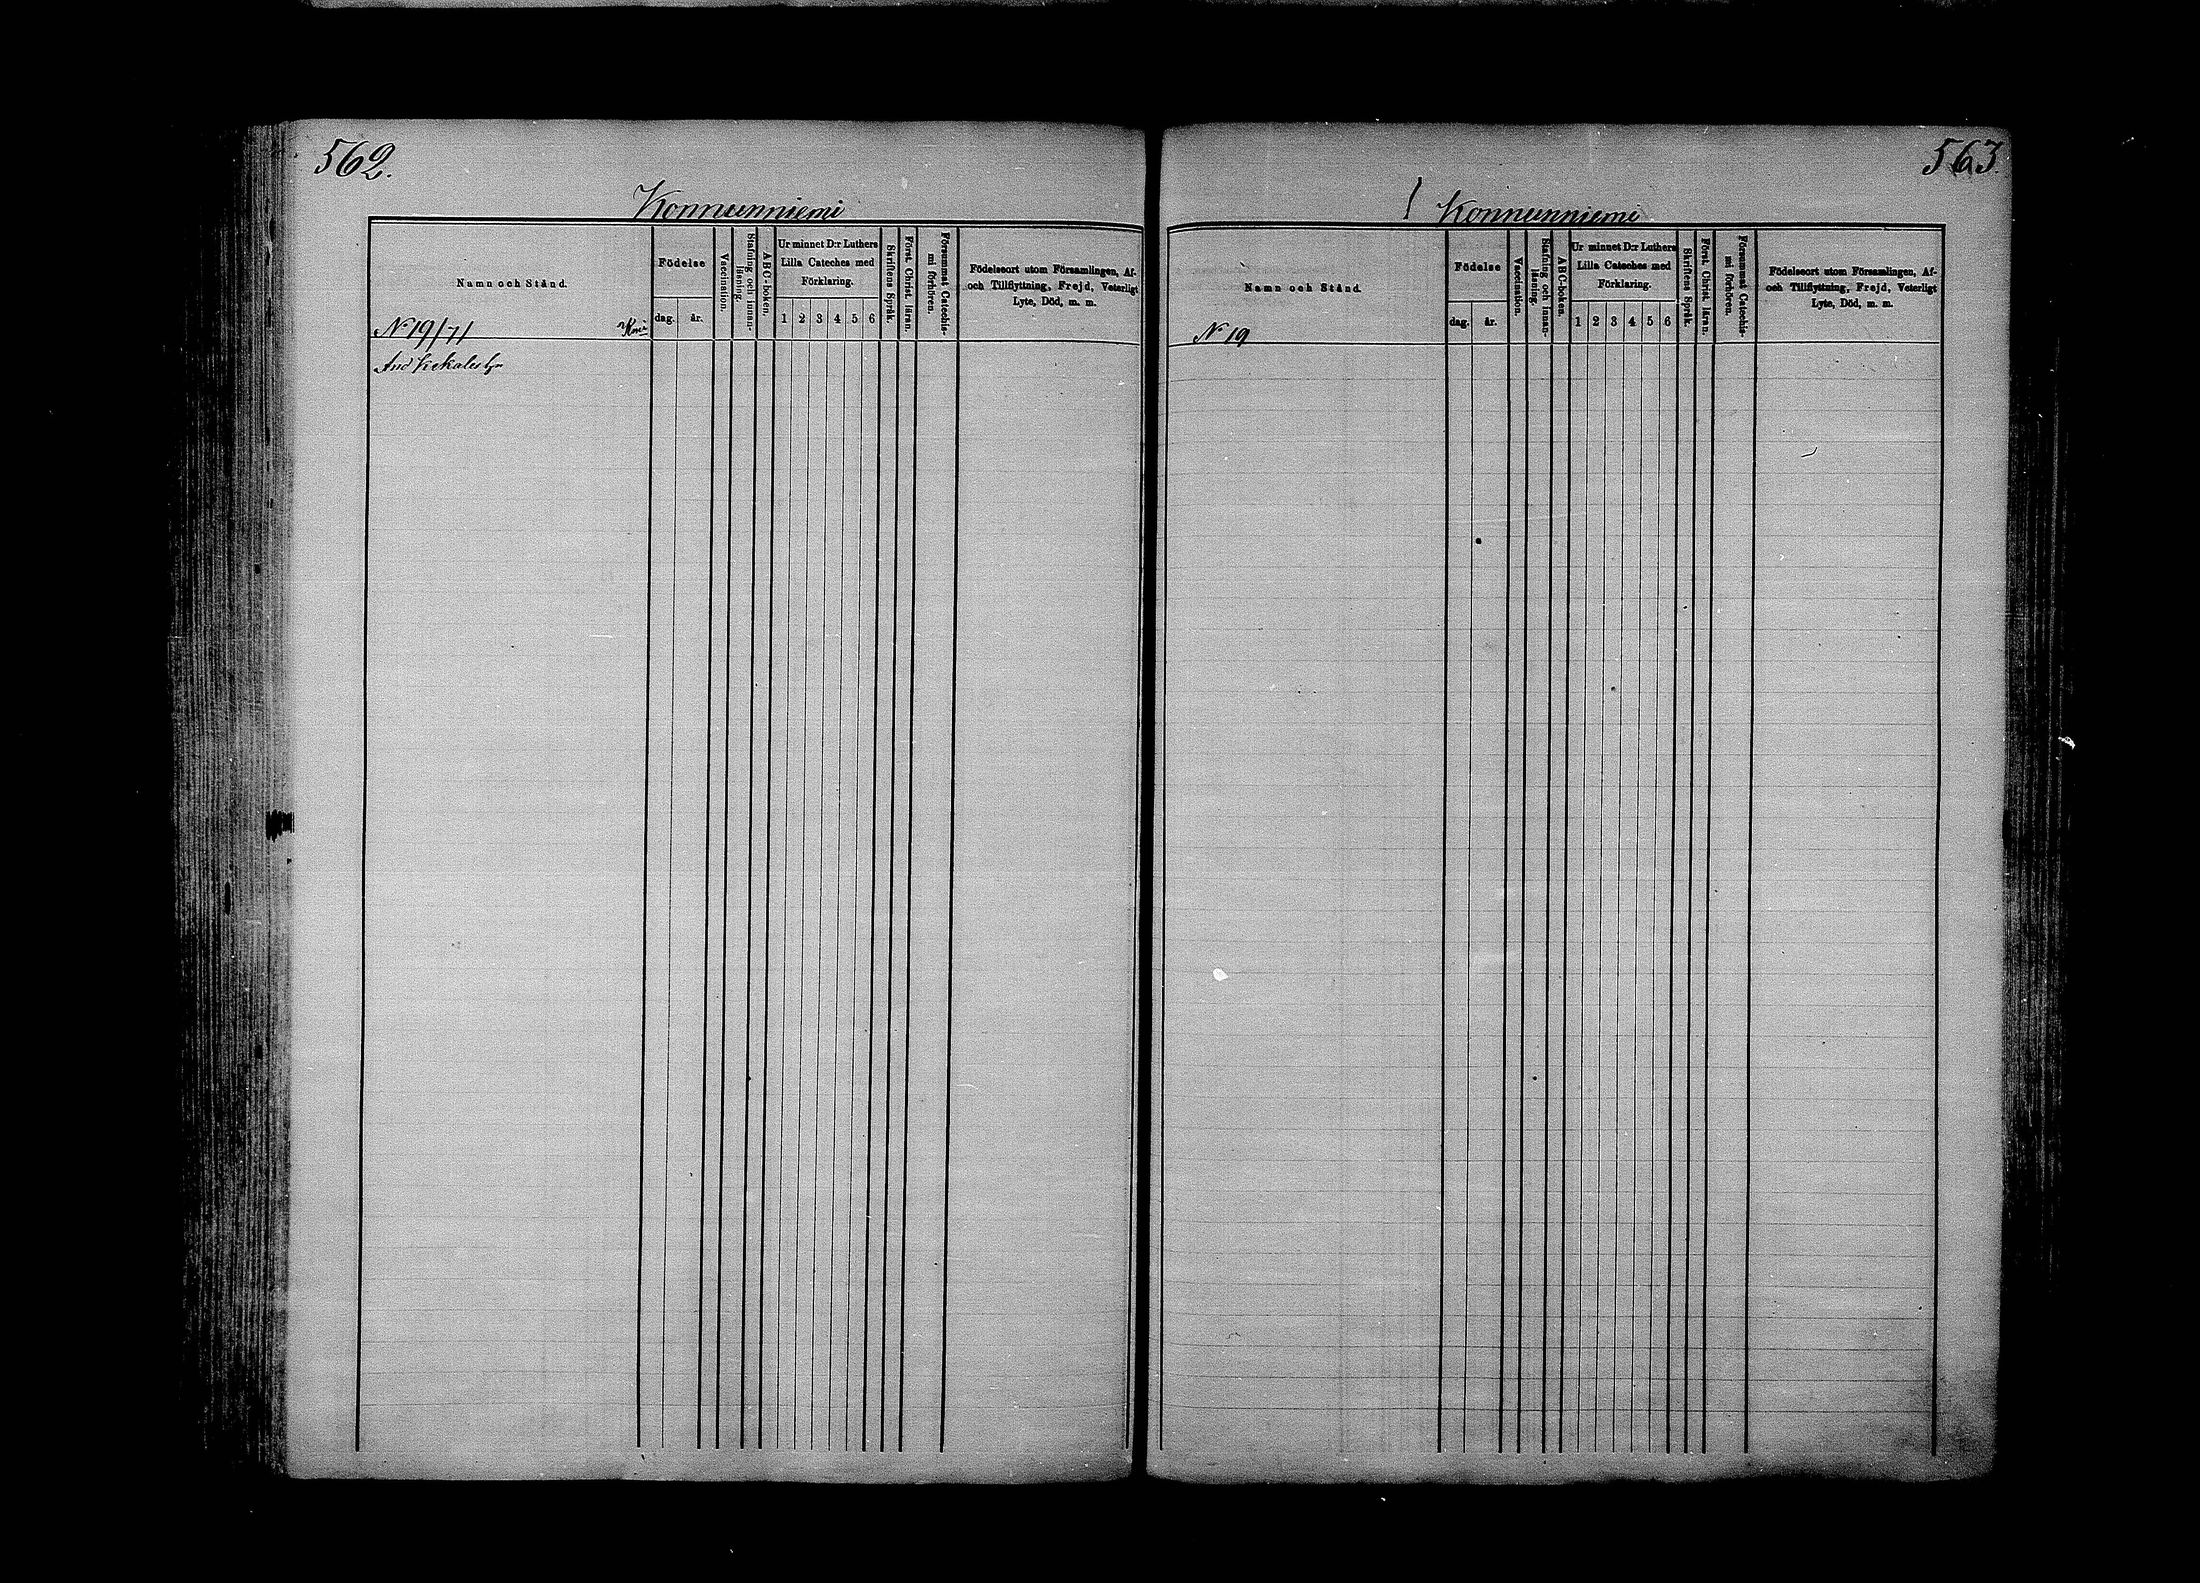 562.
Konnunniemi
Namn och Stånd.
Födelse
dag.
år.
Vaccination.
Stafning och innan-
läsning.
ABC-boken.
Ur minnet D:r Luthers
Lilla Cateches med
Förklaring.
1 2 3 4 5 6
Skriftens Språk.
Först. Christ. läran.
Försummat Catechis-
mi förhören.
Födelseort utom Församlingen, Af-
och Tillflyttning, Frejd, Veterligt
Lyte, Död, m. m.
N 19/71
And Kekales
563.
Konnunniemi
Namn och Stånd.
Födelse
dag.
år.
Vaccination.
Stafning och innan-
läsning.
ABC-boken.
Ur minnet D:r Luthers
Lilla Cateches med
Förklaring.
1 2 3 4 5 6
Skriftens Språk.
Först. Christ. läran.
Försummat Catechis-
mi förhören.
Födelseort utom Församlingen, Af-
och Tillflyttning, Frejd, Veterligt
Lyte, Död, m. m.
N 19